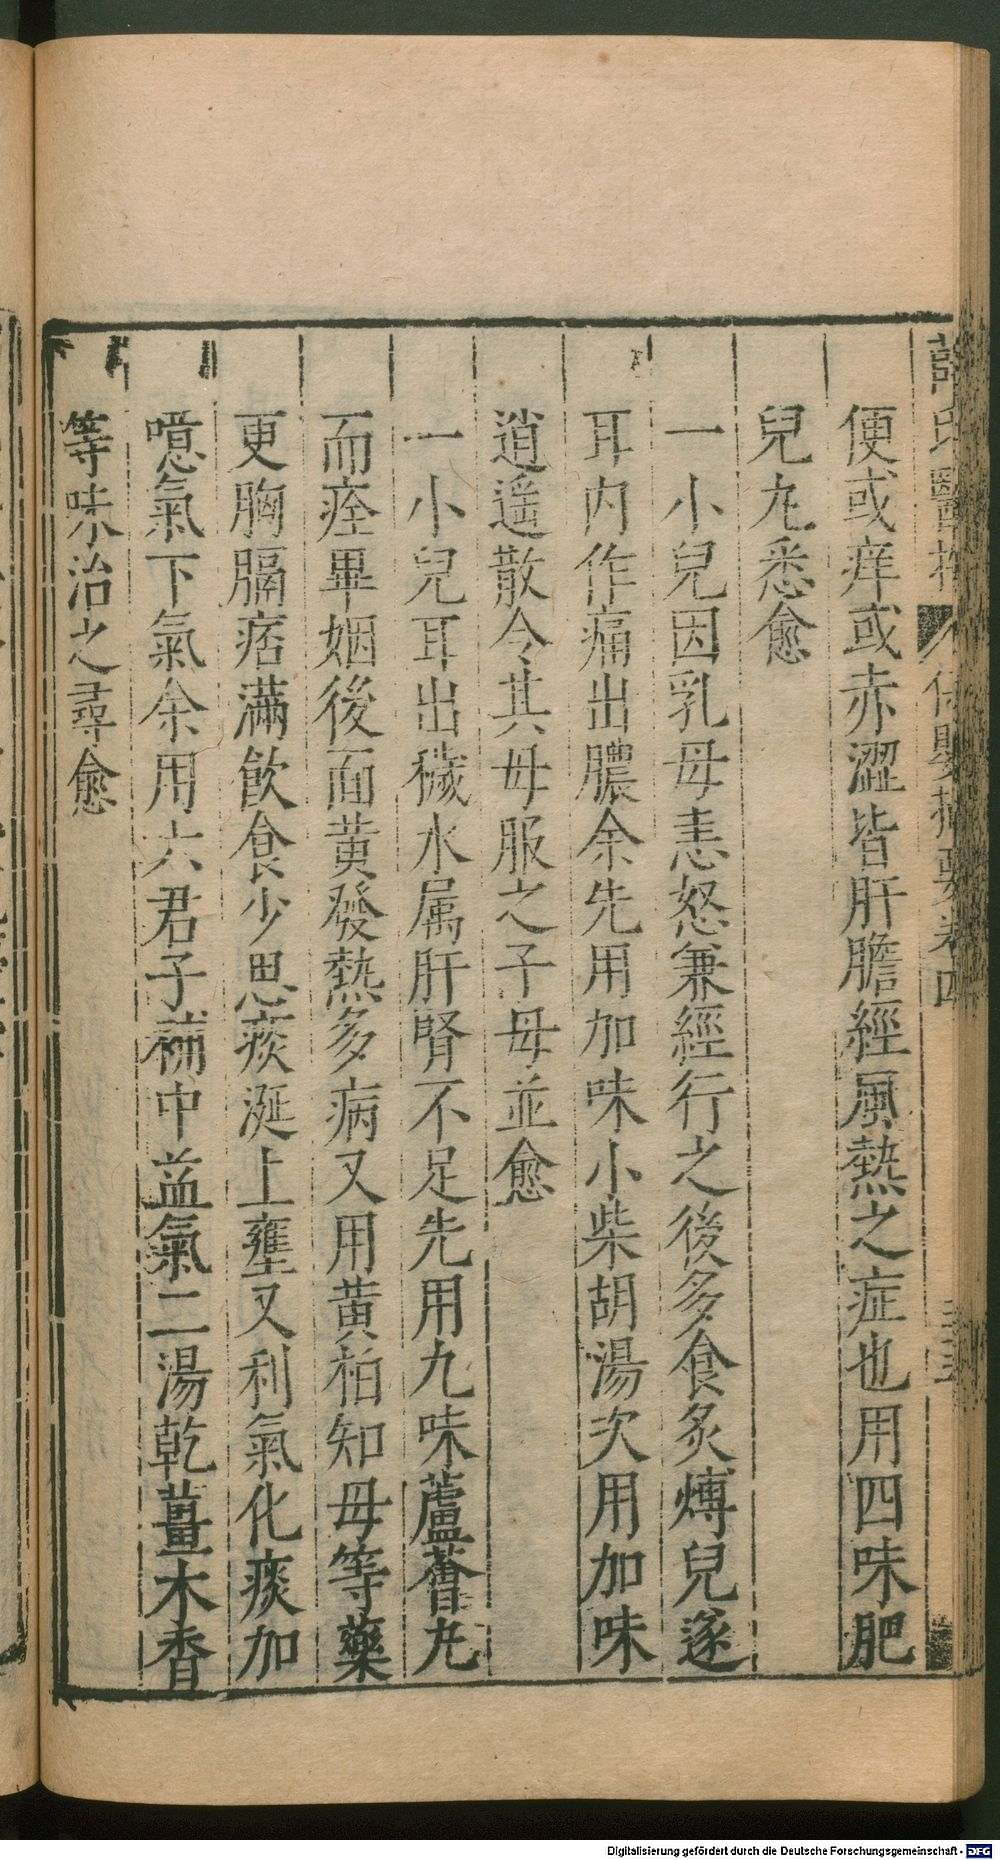 薛氏醫按 保嬰撮要卷四
便或痒或赤澀皆肝膽經風熱之症也用四味肥
兒丸悉愈
一小兒因乳母恚怒兼經行之後多食炙煿兒遂
耳内作痛出膿余先用加味小柴胡湯次用加味
逍遥散令其母服之子母並愈
一小兒耳出穢水属肝腎不足先用九味蘆薈丸
而痊畢姻後面黄發熱多病又用黄柏知母等藥
更胸膈痞滿飲食少思痰涎上壅又利氣化痰加
噫氣下氣余用六君子補中益氣二湯乾薑木香
等味治之尋愈
Digitalisierung gefördert durch die Deutsche Forschungsgemeinschaft - DFG